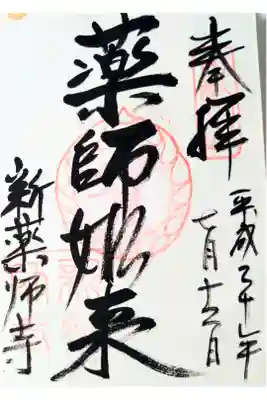 奉拝
平成二十年
七月十六日
薬師如来
新薬師寺